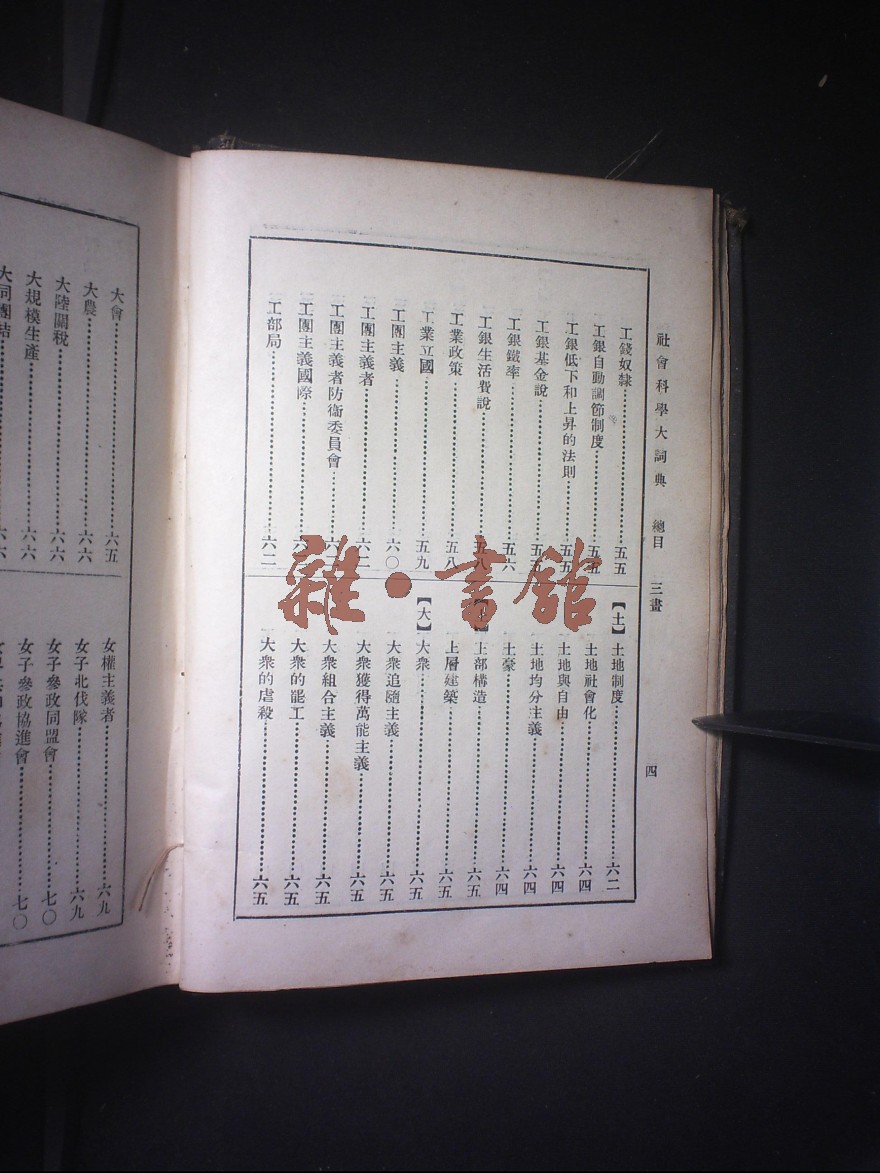 社會科學大詞典 總目 三畫 四
工錢奴隸……五五
工銀自動調節制度……五五
工銀低下和上昇的法則……五五
工銀基金說……五五
工銀鐵率……五六
工銀生活費說……五八
工業政策……五八
工業立國……五九
工團主義……六〇
工團主義者
工團主義者防衛委員會
工團主義國際
工部局……六二
【土】土地制度……六二
土地社會化……六四
土地與自由……六四
土地均分主義……六四
土豪……六四
上部構造……六五
上層建築……六五
【大】大衆……六五
大衆追隨主義……六五
大衆獲得萬能主義……六五
大衆組合主義……六五
大衆的罷工……六五
大衆的虐殺……六五
大會……六五
大農……六六
大陸關稅……六六
大規模生產……六六
大同團結……六六
女權主義者……六九
女子北伐隊……六九
女子參政同盟會……七〇
女子參政協進會……七〇
雜·書館